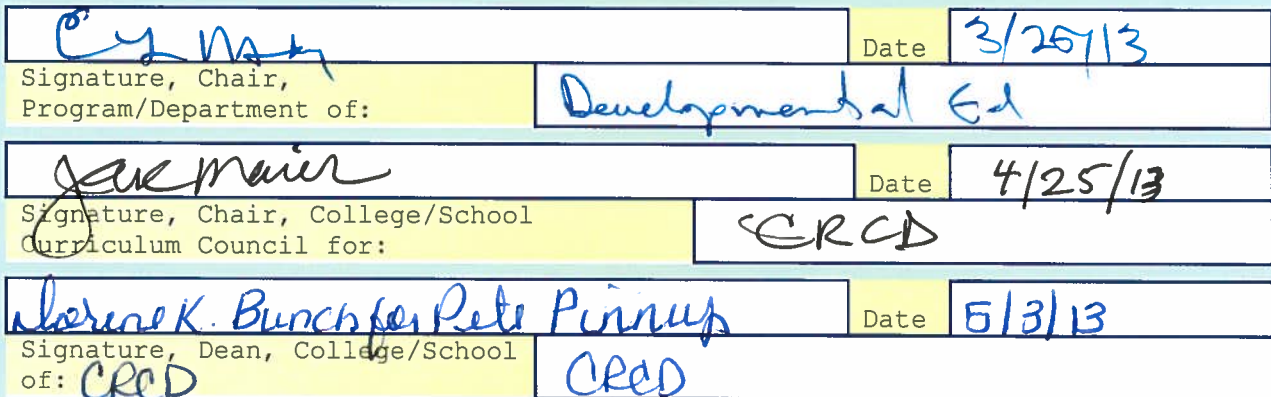 Date 3/25/13
Signature, Chair,
Program/Department of: Developmental Ed
Date 4/25/13
Signature, Chair, College/School
Curriculum Council for: CRCD
K. Bunch for Pete Pinney Date 5/3/13
Signature, Dean, College/School
of: CRCD CRCD